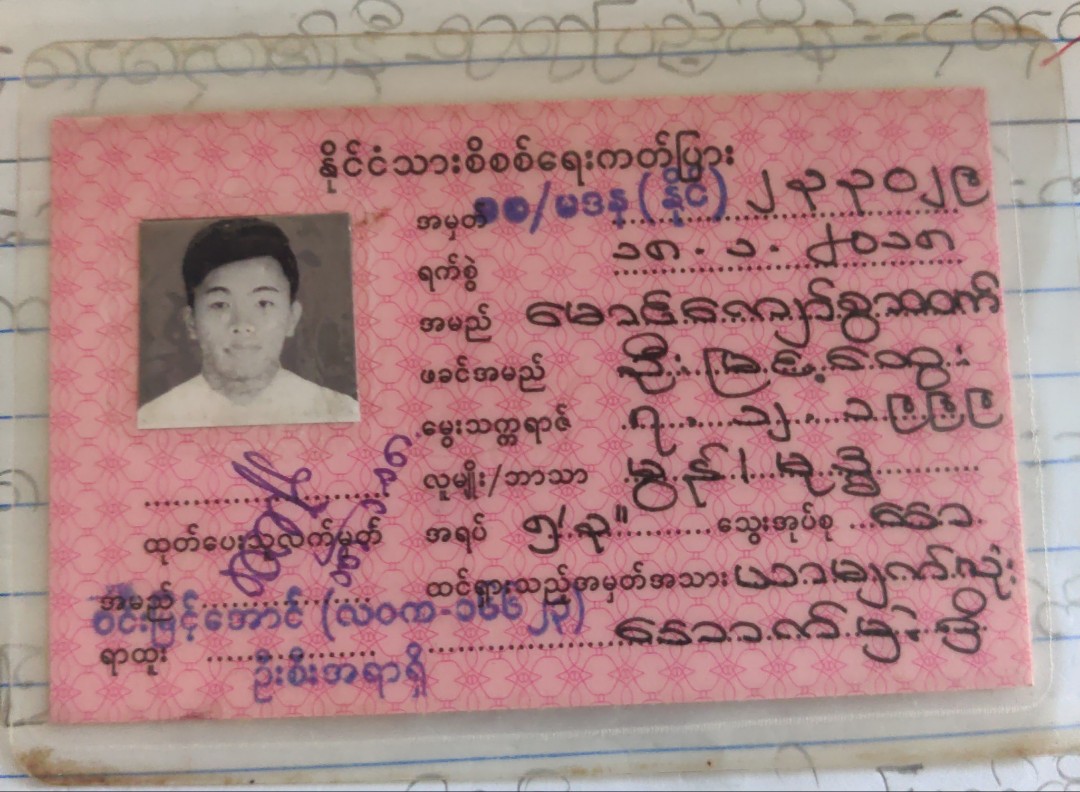 နိုင်ငံသားစိစစ်ရေးကတ်ပြား
အမှတ် ၁၀/မဒန(နိုင်) ၂၃၃၀၂၉
ရက်စွဲ ၁၈.၁.၂၀၁၈
အမည် မောင်ကျော်စွာထက်
ဖခင်အမည် ဦးမြင့်ထွေး
မွေးသက္ကရာဇ် ၇.၁၂.၁၉၉၉
လူမျိုး/ဘာသာ မွန်/ဗုဒ္ဓ
အရပ် ၅'၃" သွေးအုပ်စု အေ
ထင်ရှားသည့်အမှတ်အသား ယာမျက်လုံး
အောက်မှဲ့
ထုတ်ပေးသူလက်မှတ်
အမည် ဝင်းမြင့်အောင် (လဝက-၁၆၆၂၃)
ရာထူး ဦးစီးအရာရှိ